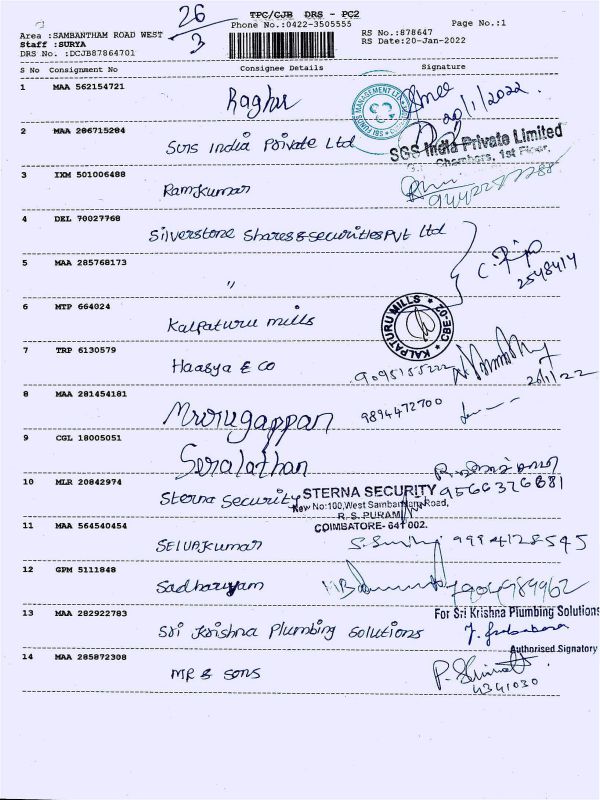 26
3
TPC/CJB DRS - PC2
Phone No.:0422-3505555
Page No.:1
Area :SAMBANTHAM ROAD WEST
Staff :SURYA
DRS No. :DCJB87864701
RS No.:878647
RS Date:20-Jan-2022
S No Consignment No Consignee Details Signature
1 MAA 562154721 Raghu
20/1/2022.
2 MAA 286715284 SGS India Private Ltd
SGS India Private Limited
Chambers, 1st Floor,
3 IXM 501006488 Ramkumar
4 DEL 70027768 Silverstone Shares & Securities Pvt Ltd
5 MAA 285768173 "
2548414
6 MTP 664024 Kalpaturu mills
KALPATURU MILLS
CBE-02
7 TRP 6130579 Haasya & CO
20/1/22
8 MAA 281454181 Murugappan 9894472700
9 CGL 18005051 Seralathan
10 MLR 20842974 Sterna Security
STERNA SECURITY
New No:100,West Sambandam Road,
R. S. PURAM
COIMBATORE- 641 002.
9566326881
11 MAA 564540454 Selvakumar 9994128545
12 GPM 5111848
13 MAA 282922783 Sri Krishna Plumbing Solutions
For Sri Krishna Plumbing Solutions
Authorised Signatory
14 MAA 285872308 MR & SONS
4341030